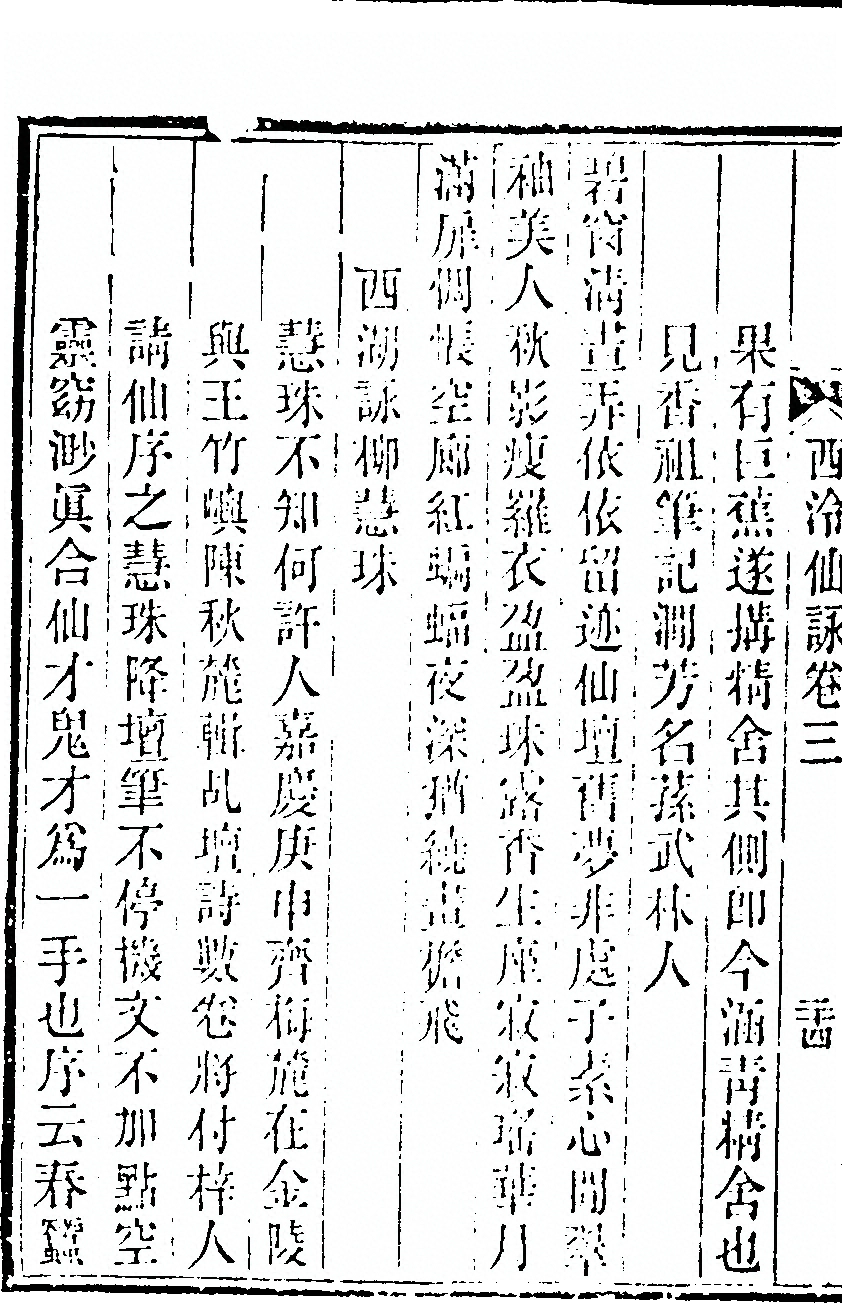 西泠仙詠卷三
果有巨蕉遂搆精舍其側卽今涵靑精舍也
見香祖筆記澗芳名蓀武林人
碧窗淸晝弄依依留迹仙壇舊夢非處子素心閒翠
袖美人秋影瘦羅衣盈盈珠露香生座寂寂瑤華月
滿扉惆悵空廊紅蝙蝠夜深猶繞畫檐飛
西湖詠柳慧珠
慧珠不知何許人嘉慶庚申齊梅麓在金陵
與王竹嶼陳秋麓輯乩壇詩數卷將付梓人
請仙序之慧珠降壇筆不停機文不加點空
靈窈渺眞合仙才鬼才爲一手也序云春蠶